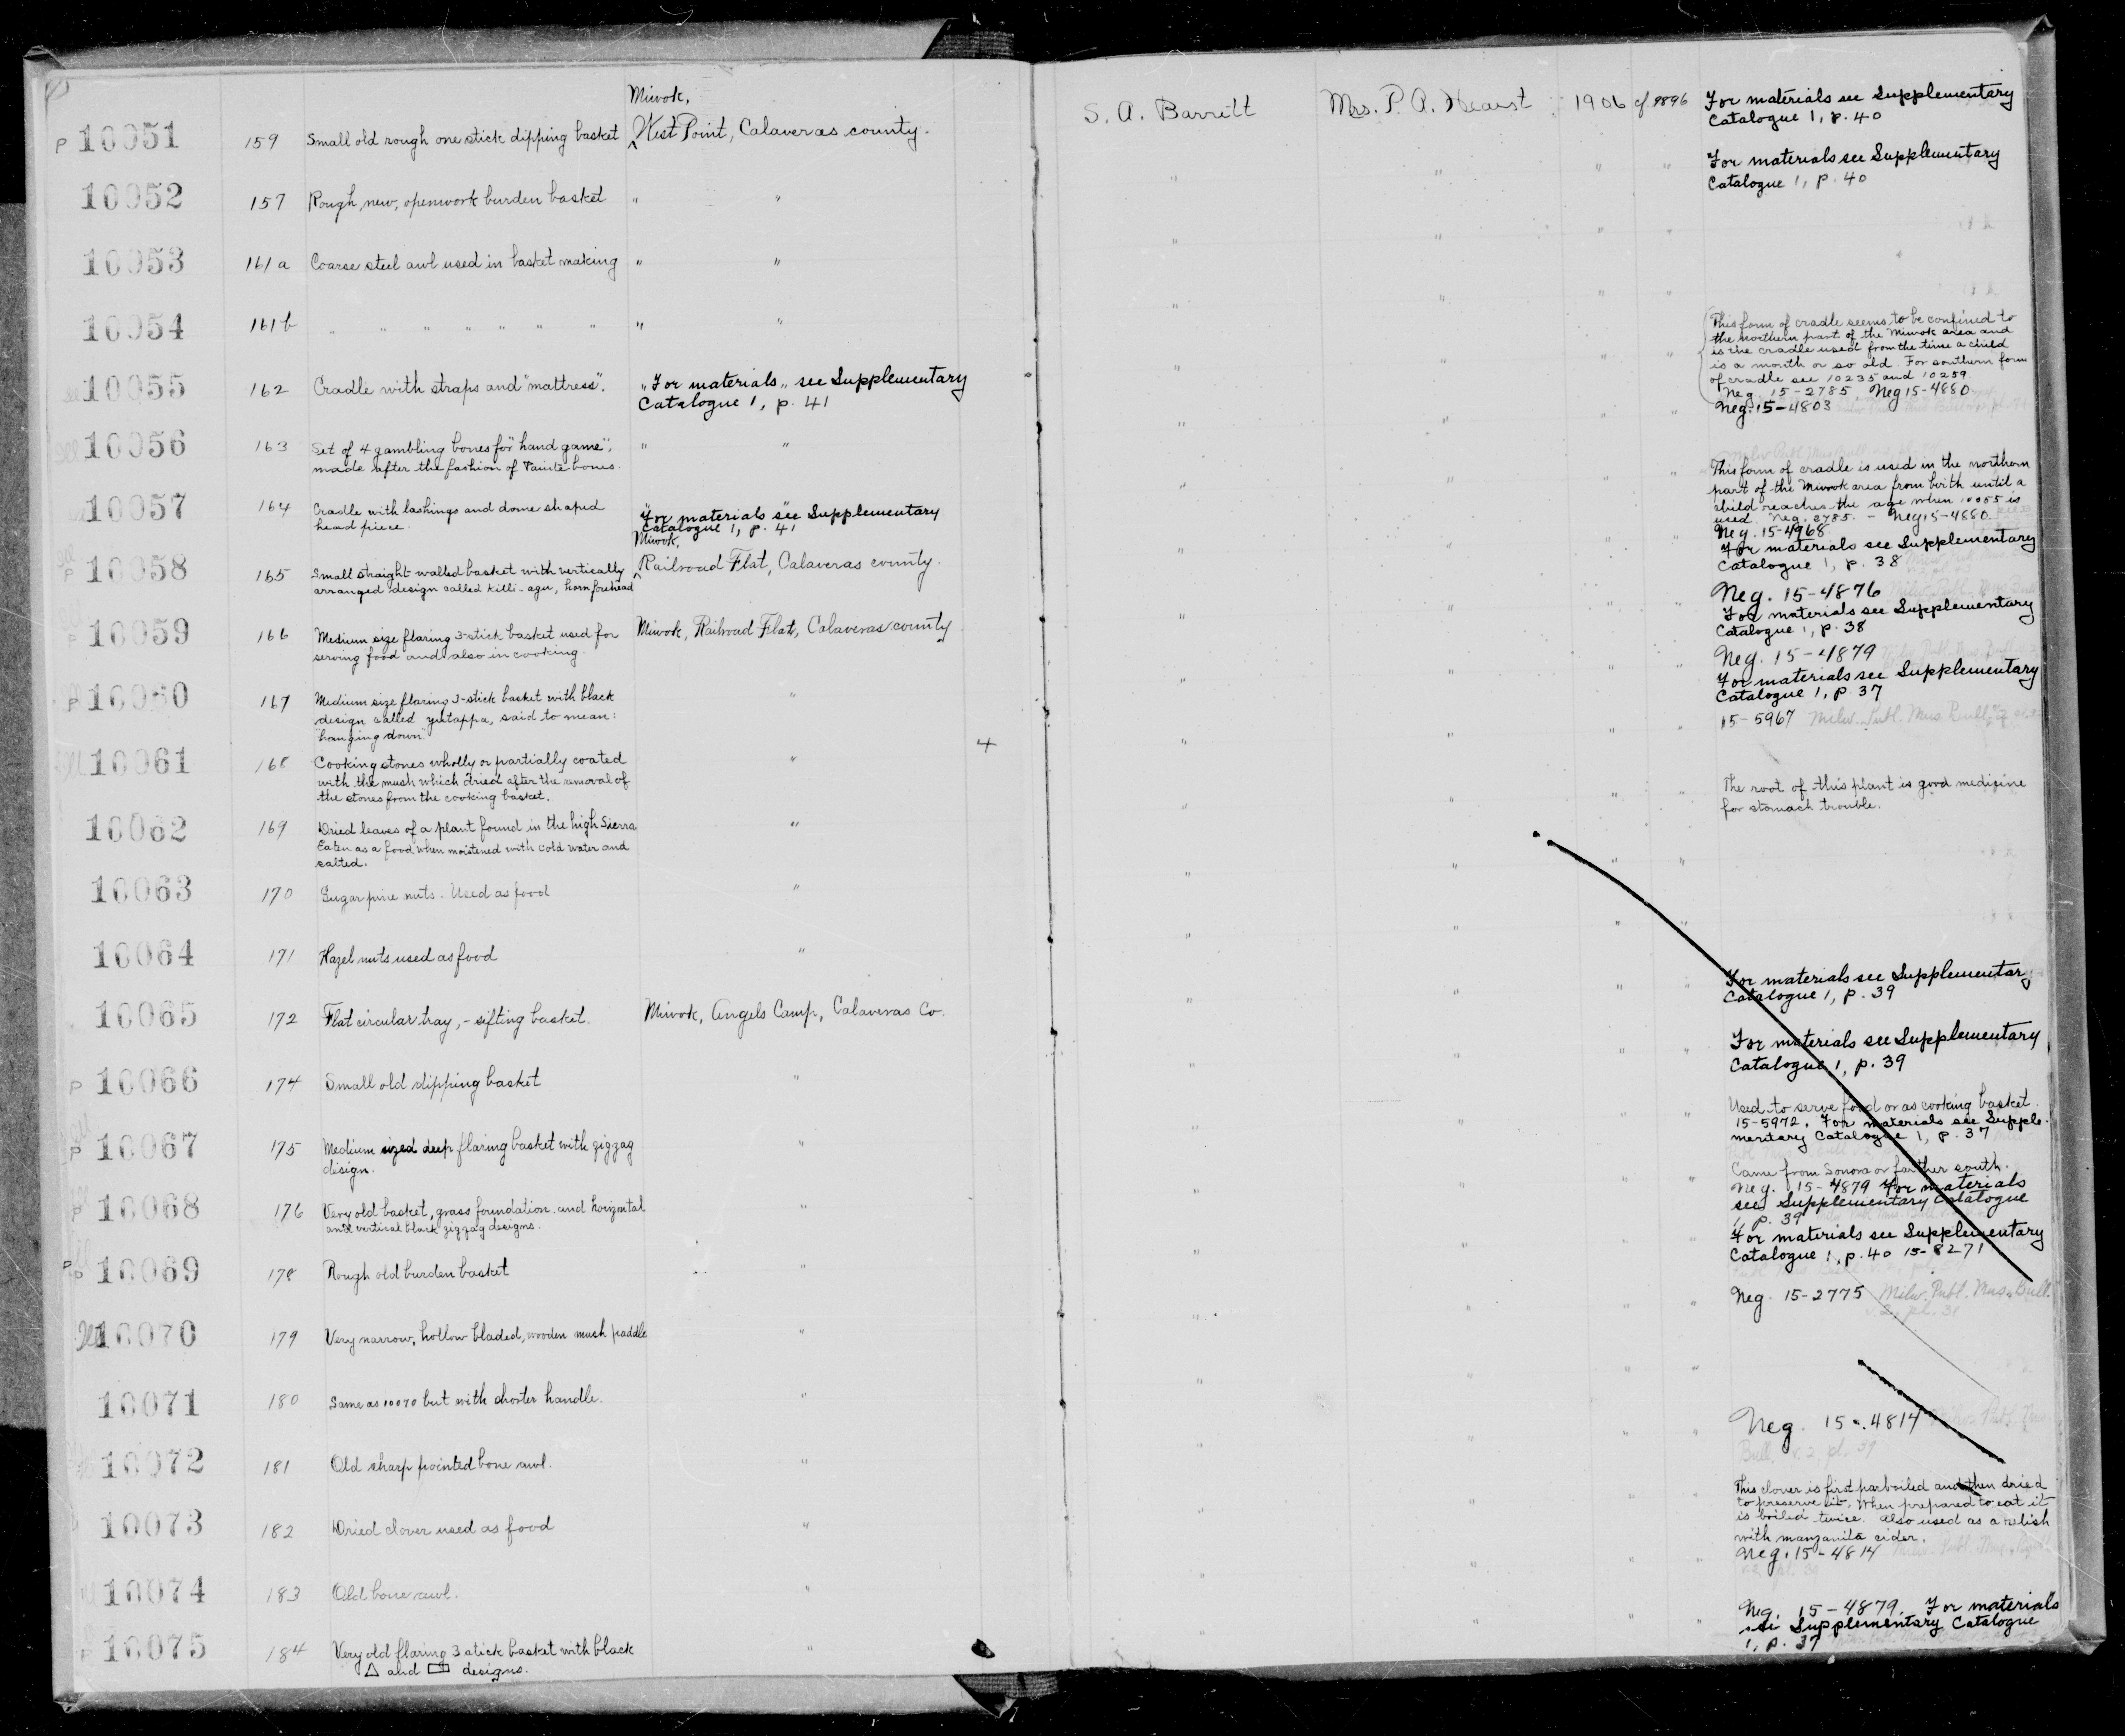 Miwok,
P 10051 159 Small old rough one stick dipping basket West Point, Calaveras county.
10052 157 Rough, new, openwork burden basket " "
10053 161a Coarse steel awl used in basket making " "
10054 161b " " " " " " " " "
10055 162 Cradle with straps and "mattress". " For materials " see Supplementary
Catalogue 1, p. 41
10056 163 Set of 4 gambling bones for "hand game", " "
made after the fashion of Painte bones.
10057 164 Cradle with lashings and dome shaped "For materials "see Supplementary
head piece. Catalogue 1, p. 41
Miwok,
P 10058 165 Small straight walled basket with vertically Railroad Flat, Calaveras county.
arranged design called killi-agu, horn forehead
P 10059 166 Medium size flaring 3-stick basket used for Miwok, Railroad Flat, Calaveras county
serving food and also in cooking.
P 10060 167 Medium size flaring 3-stick basket with black "
design called yutappa, said to mean:
"hanging down"
10061 168 Cooking stones wholly or partially coated " 4
with the mush which dried after the removal of
the stones from the cooking basket.
10062 169 Dried leaves of a plant found in the high Sierra "
Eaten as a food when moistened with cold water and
salted.
10063 170 Sugar pine nuts. Used as food "
10064 171 Hazel nuts used as food "
10065 172 Flat circular tray, - sifting basket. Miwok, Angels Camp, Calaveras Co.
P 10066 174 Small old dipping basket "
P 10067 175 Medium sized deep flaring basket with zigzag "
design.
P 10068 176 Very old basket, grass foundation and horizontal "
and vertical black zigzag designs.
P 10069 178 Rough old burden basket "
10070 179 Very narrow, hollow bladed, wooden mush paddle "
10071 180 Same as 10070 but with shorter handle. "
10072 181 Old sharp pointed bone awl. "
10073 182 Dried clover used as food "
10074 183 Old bone awl. "
P 10075 184 Very old flaring 3 stick basket with black "
△ and ▭ designs.
S. A. Barrett Mrs. P. A. Hearst 1906 cf 9896 For materials see Supplementary
Catalogue 1, p. 40
For materials see Supplementary
Catalogue 1, p. 40
This form of cradle seems to be confined to
the northern part of the Miwok area and
is the cradle used from the time a child
is a month or so old. For southern form
of cradle see 10235 and 10259.
Neg. 15-2785, Neg 15-4880
Neg. 15-4803
This form of cradle is used in the northern
part of the Miwok area from birth until a
child reaches the age when 10055 is
used. Neg. 2785. - Neg 15-4880.
Neg. 15-4968
For materials see Supplementary
Catalogue 1, p. 38
Neg. 15-4876
For materials see Supplementary
Catalogue 1, p. 38
Neg. 15-4879
For materials see Supplementary
Catalogue 1, p. 37
15-5967 Milw. Publ. Mus. Bull.
The root of this plant is good medicine
for stomach trouble.
For materials see Supplementary
Catalogue 1, p. 39
For materials see Supplementary
Catalogue 1, p. 39
Used to serve food or as cooking basket.
15-5972. For materials see Supple-
mentary Catalogue 1, p. 37
Came from Sonora or farther south.
Neg. 15-4879 For materials
see Supplementary Catalogue
1, p. 39
For materials see Supplementary
Catalogue 1, p. 40 15-8271
Neg. 15-2775 Milw. Publ. Mus. Bull.
v. 2, pl. 31
Neg. 15-4814 Milw. Publ. Mus.
Bull. v. 2 pl. 39
This clover is first parboiled and then dried
to preserve it. When prepared to eat it
is boiled twice. Also used as a relish
with manzanita cider.
Neg. 15-4814 Milw. Publ. Mus. Bull.
Neg. 15-4879. For materials
see Supplementary Catalogue
1, p. 37